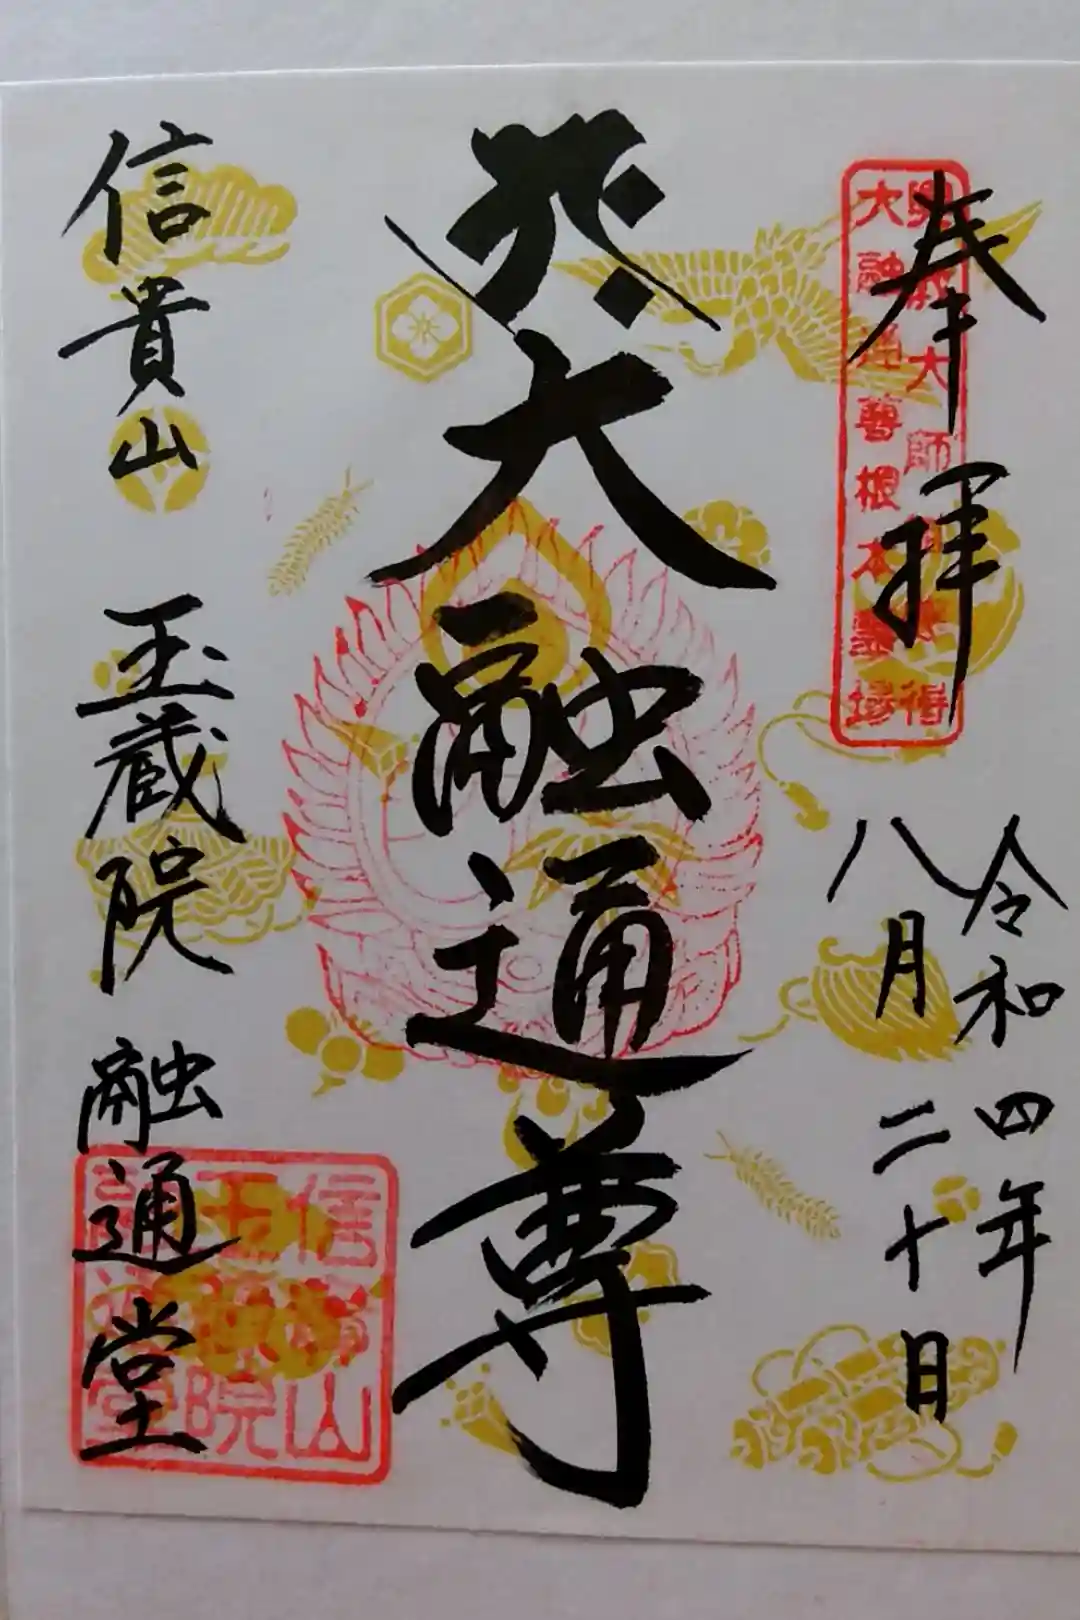 奉拝
令和四年
八月二十日
興教大師
大融通尊根本霊場
大融通尊
信貴山
玉蔵院
融通堂
信貴山
玉蔵院
融通堂